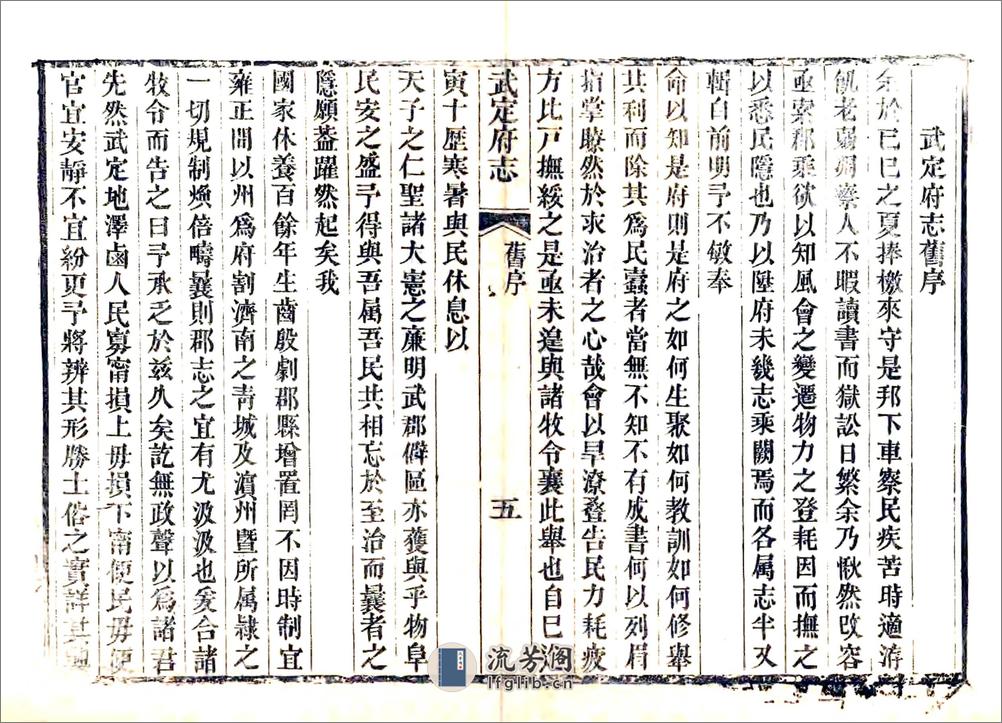 武定府志舊序
余於己巳之夏捧檄來守是邦下車察民疾苦時適洊
飢老弱凋瘵人不暇讀書而獄訟日繁余乃愀然改容
亟索郡乘欲以知風會之變遷物力之登耗因而撫之
以悉民隱也乃以陞府未幾志乘闕焉而各属志半又
輯自前明予不敏奉
命以知是府則是府之如何生聚如何教訓如何修舉
其利而除其為民蠹者當無不知不有成書何以列眉
指掌瞭然於求治者之心哉會以旱潦叠告民力耗疲
方比戸撫綏之是亟未遑與諸牧令襄此舉也自己巳
武定府志
舊序
五
寅十歴寒暑與民休息以
天子之仁聖諸大憲之亷明武郡僻區亦獲與乎物阜
民安之盛予得與吾属吾民共相忘於至治而曩者之
隱願葢躍然起矣我
國家休養百餘年生齒殷劇郡縣增置罔不因時制宜
雍正間以州為府割濟南之青城及濵州暨所属隷之
一切規制煥倍疇曩則郡志之宜有尤汲汲也爰合諸
牧令而告之曰予承乏於兹久矣訖無政聲以為諸君
先然武定地澤鹵人民寡甯損上毋損下甯便民毋便
官宜安靜不宜紛更予將辨其形勝土俗之實詳其
流芳閣
lfglib.cn